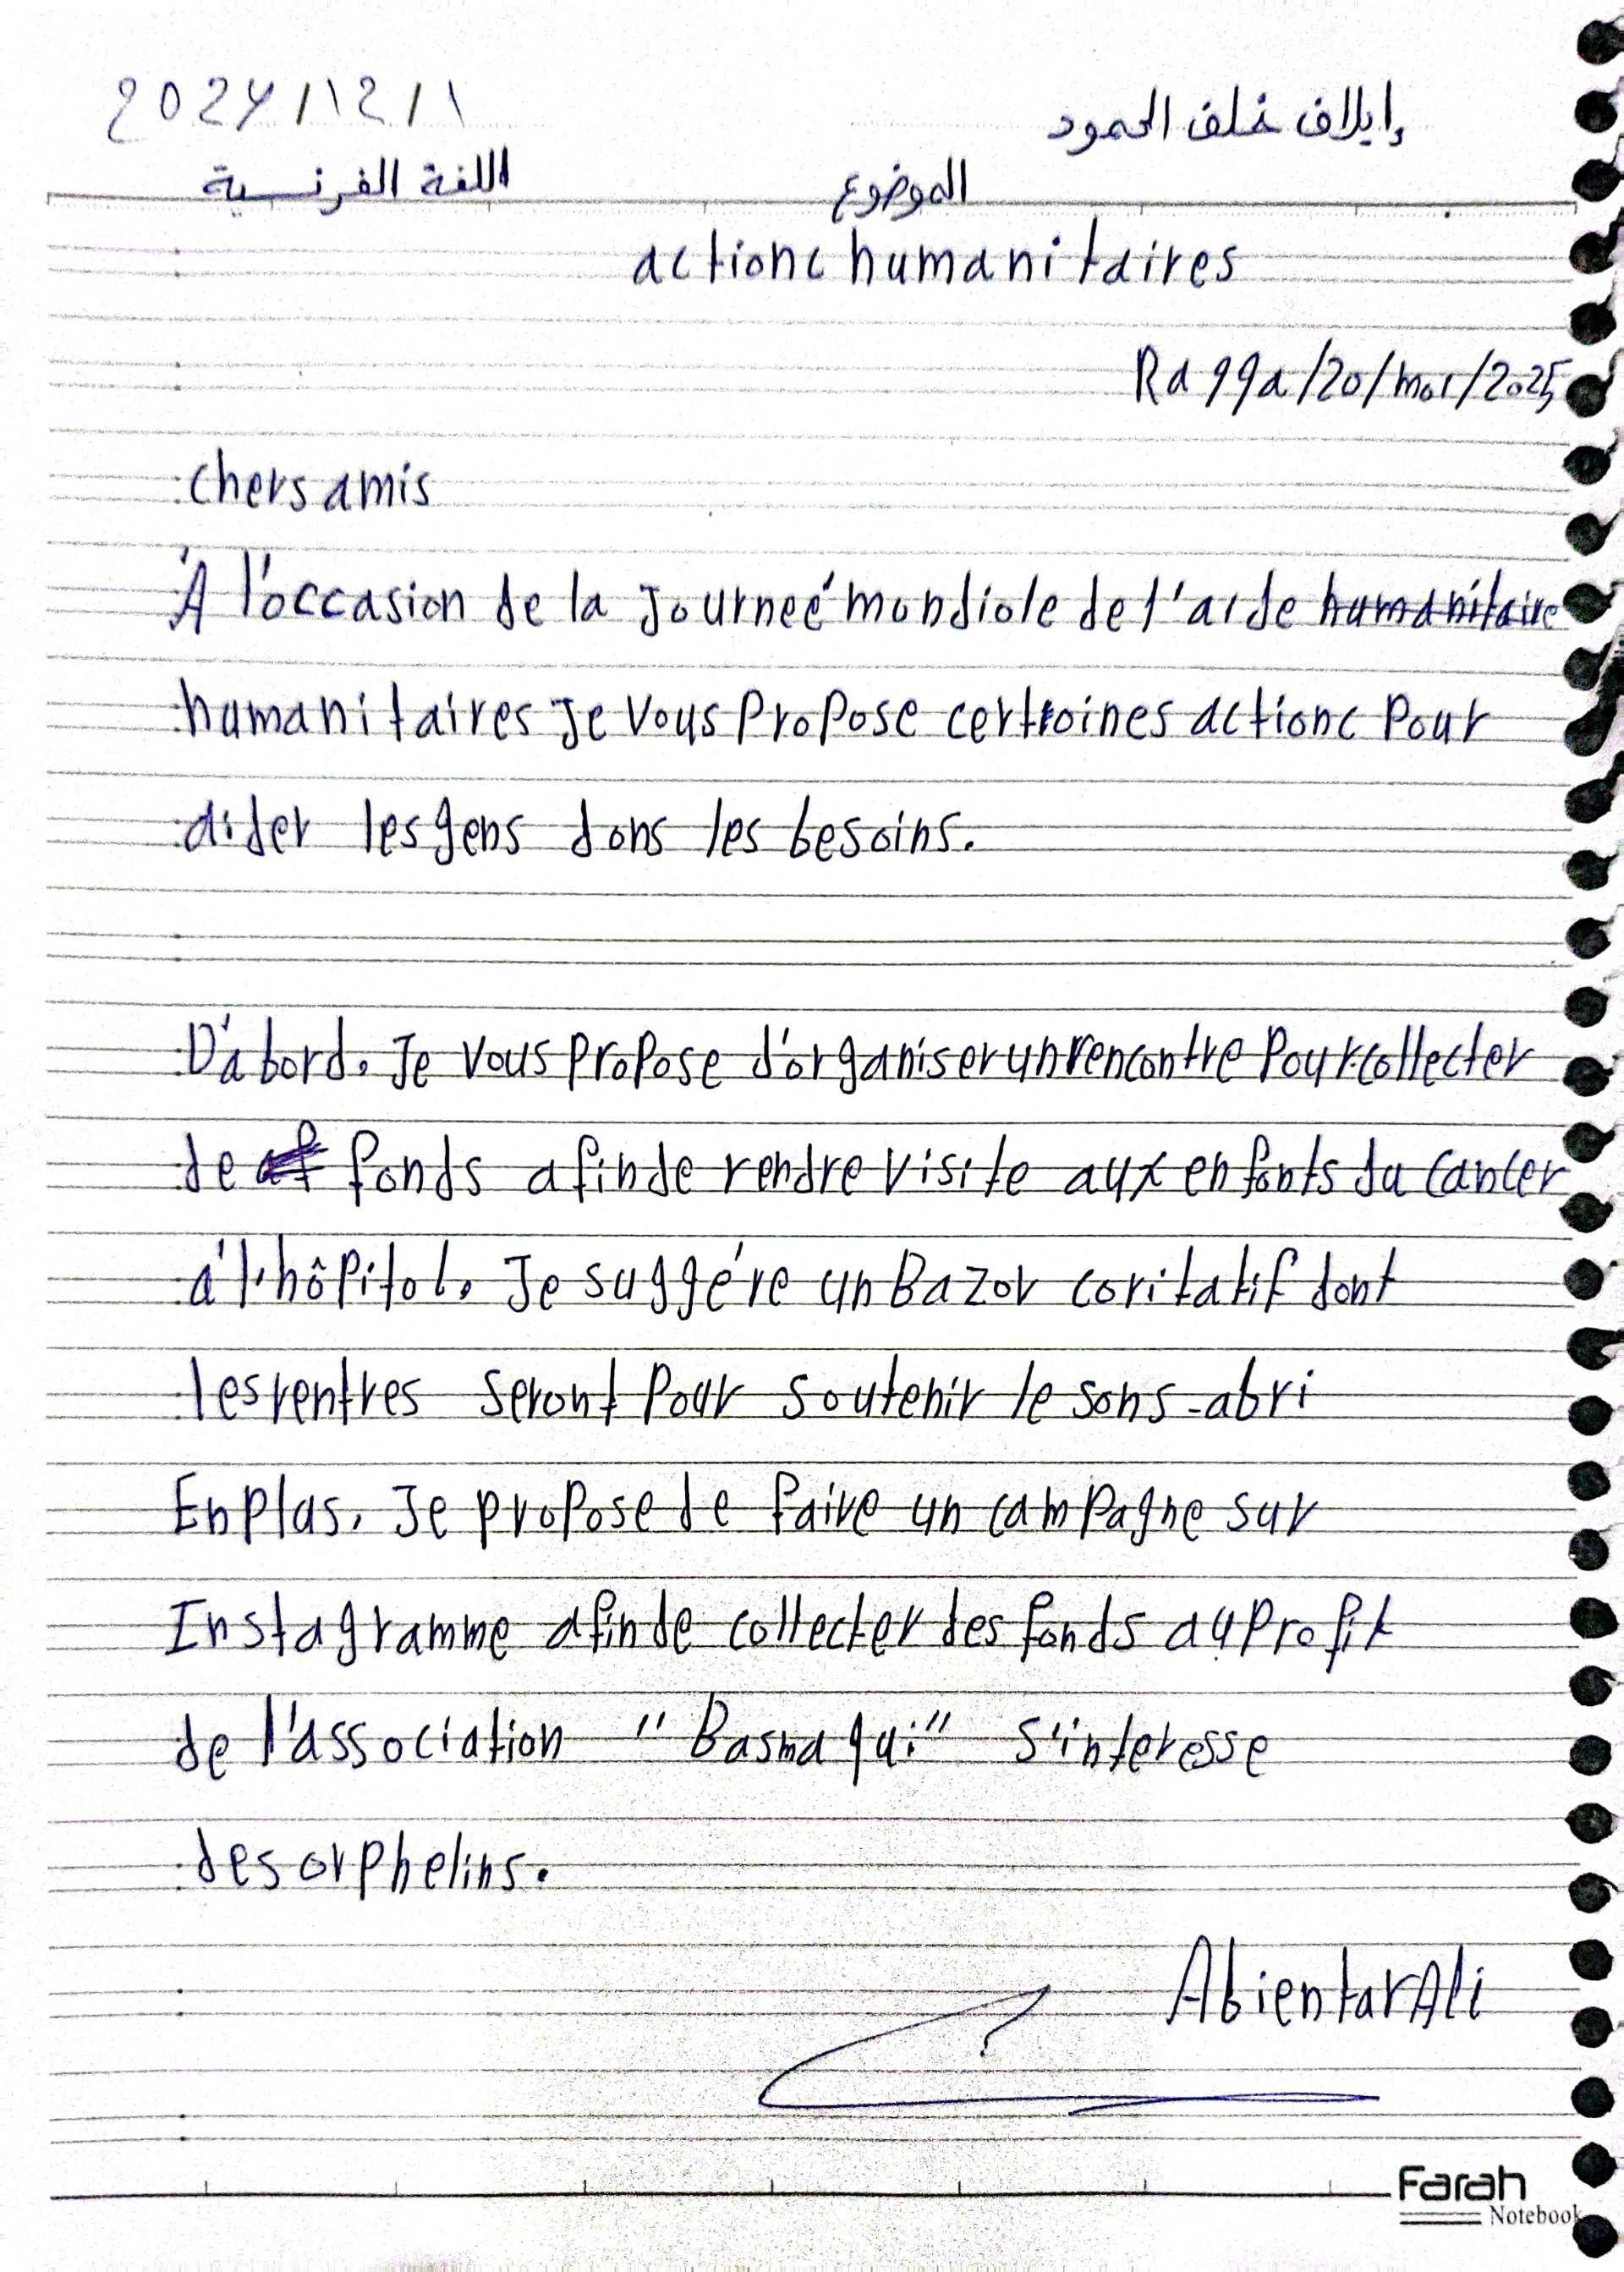 إيلاف خلف الحمود 2024/12/1
الموضوع اللغة الفرنسية
actionc humanitaires
Raqqa/20/mai/2025
chers amis
À l'occasion de la Journeé mondiole de l'aide humanitaire
humanitaires Je vous propose certroines actionc pour
aider les gens dons les besoins.
D'abord. Je vous propose d'organiser un rencontre pour collecter
de fonds afin de rendre visite aux enfonts du cancer
á l'hôpitol. Je suggére un Bazor coritatif dont
les rentres seront pour soutenir le sons-abri
En plus, Je propose de faire un campagne sur
Instagramme afin de collecter des fonds au profit
de l'association "Basma qui" s'interesse
des orphelins.
Abientar Ali
Farah
Notebook